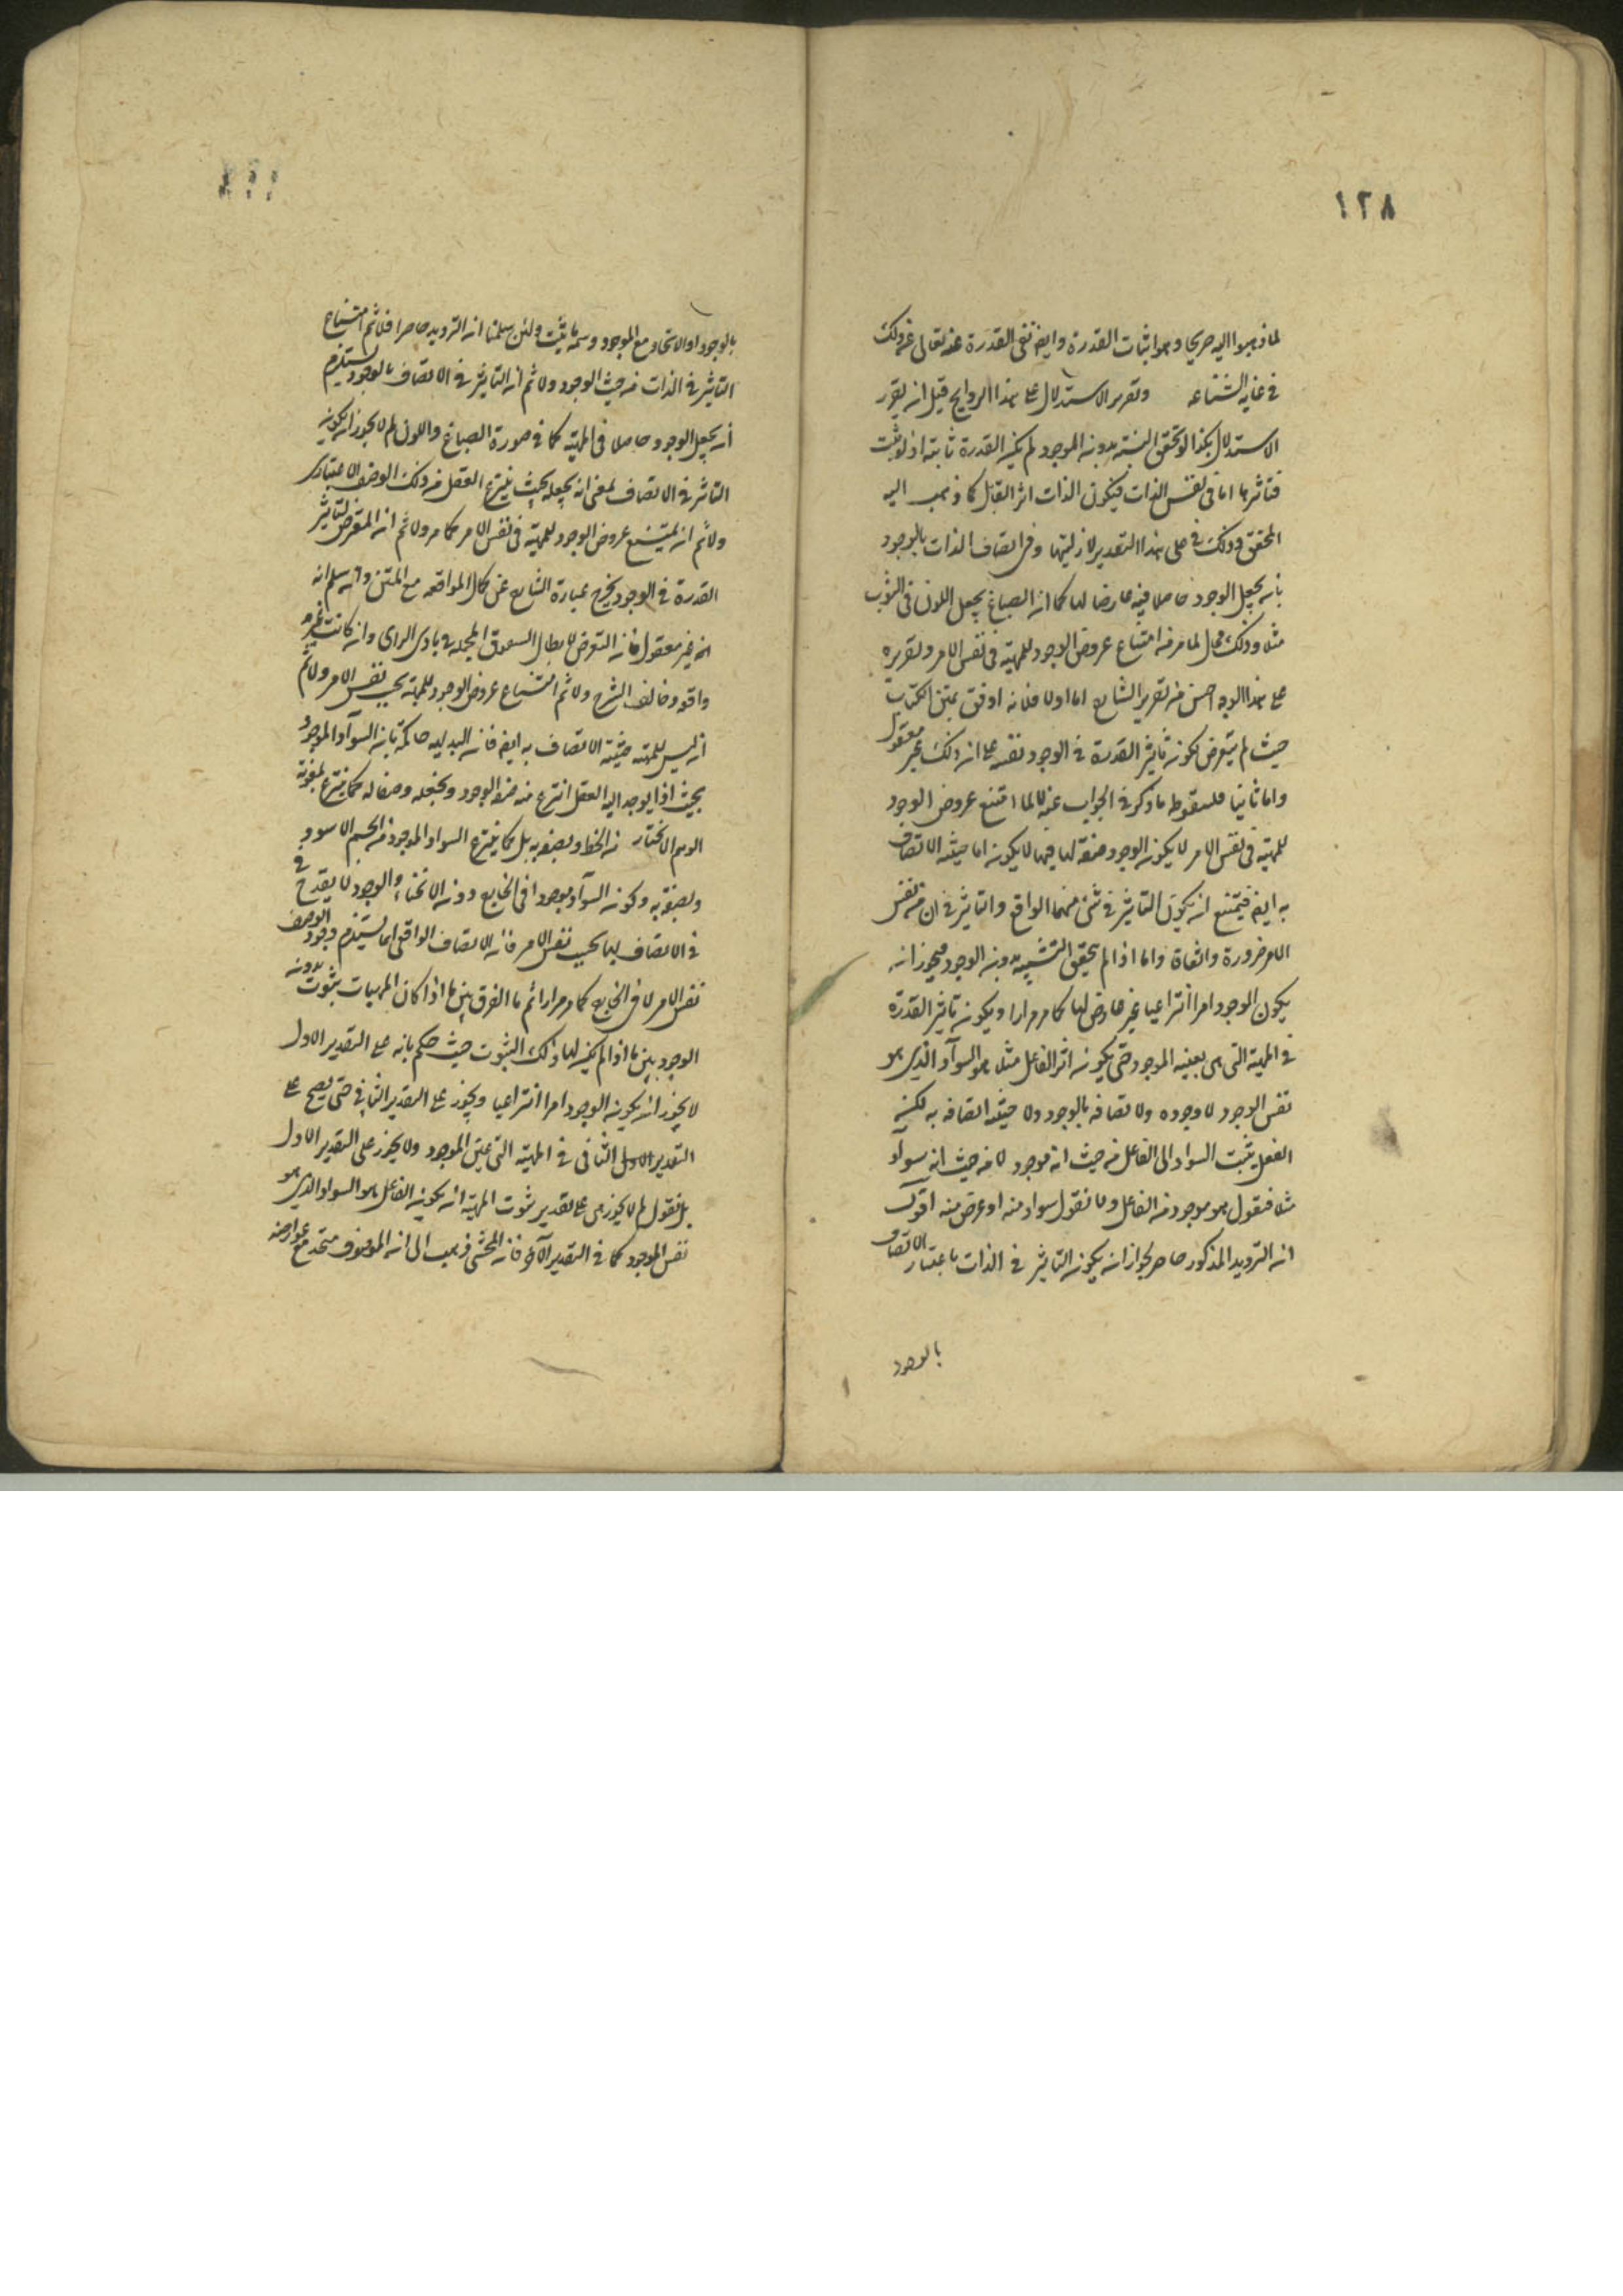 ١٢٨
لما ذهبوا اليه صريحا وهو اثبات القدرة وايضا نفى القدرة عنه تعالى عن ذلك
فى غاية الشناعة وتقرير الاستدلال على هذا قيل ان يقرر
الاستدلال هكذا لو تحقق بدون الوجود لم يكن القدرة ثابتة اذ لو ثبت
فتاثيرها اما فى نفس الذات فيكون الذات اثر القابل كما ذهب اليه
المحقق وذلك على هذا التقدير لازليتها وفى اتصاف الذات بالوجود
بان يجعل الوجود حاصلا فيه عارضا لها كما ان الصباغ يجعل اللون فى الثوب
مثلا وذلك محال لما مر من امتناع عروض الوجود للمهية فى نفس الامر وتقريره
على هذا الوجه احسن من تقرير الشارح اما اولا فلانه اوفق بمتن الكتاب
حيث لم يتعرض لكون تأثير القدرة فى الوجود نفسه على ان ذلك غير معقول
واما ثانيا فلسقوط ما ذكر فى الجواب عنه لما امتنع عروض الوجود
للمهية فى نفس الامر لا يكون الوجود صفة لها فيها لا يكون اما حيثية الاتصاف
به ايضا فيمتنع ان يكون التأثير فى شئ منهما الواقع والتاثير فى ان من نفس
الامر ضرورة واتفاقا واما اذا لم يتحقق بدون الوجود فيجوز ان
يكون الوجود امرا انتزاعيا غير عارض لها كما مر مرارا ويكون تأثير القدرة
فى المهية التى هى بعينه الموجود حتى يكون اثر الفاعل مثلا هو السواد الذى هو
نفس الوجود لا وجوده ولا اتصافه بالوجود ولا حيثية اتصافه به لكن
العقل يثبت السواد الى الفاعل من حيث انه موجود لا من حيث انه سواد
مثلا فنقول هو موجود من الفاعل ولا نقول سواد منه او عرض منه اقول
ان الترديد المذكور حاصر لجواز ان يكون التاثير فى الذات باعتبار الاتصاف
بالوجود
بالوجود او الاتحاد مع الموجود ولئن سلمنا ان الترديد حاصرا فلا ثم امتناع
التاثير فى الذات من حيث الوجود ولا ثم ان التاثير فى الاتصاف بالوجود يستلزم
ان يجعل الوجود حاصلا فى المهية كما فى صورة الصباغ واللون لم لا يجوز ان يكون
التاثير فى الاتصاف بمعنى ان يجعله بحيث ينتزع العقل منه ذلك الوصف الاعتبارى
ولا ثم ان يمتنع عروض الوجود للمهية فى نفس الامر كما مر ولا ثم ان المتعرض لتاثير
القدرة فى الوجود يخرج عبارة الشارح عن كمال الموافقة مع المتن سلم انه
غير معقول فان التعرض لابطال المحتملة فى بادى الراى وان كانت غير
واقعة وخالف الشرح ولا ثم امتناع عروض الوجود للمهية بحسب نفس الامر ولا ثم
ان ليس للمهية حيثية الاتصاف به ايضا فان البديهة حاكمة بان السواد الموجود
بحيث اذا يوجد اليه العقل انتزع منه صفة الوجود ويجعله وصفا له كما ينتزع بمعونة
الوهم من الخط ويصفه به بل كما ينتزع السواد الموجود من الجسم الاسود
ويصفه به وكون السواد موجودا فى الخارج دون الانحناء والوجود لا يقدح فى
فى الاتصاف بها بحسب نفس الامر فان الاتصاف الواقعى انما يستلزم وجود الوصف
نفس الامر لا فى الخارج كما مر مرارا ثم ما الفرق بين ما اذا كان المهيات بثبوت بدونه
الوجود بين ما اذا لم يكن لها ذلك الثبوت حيث حكم بانه على التقدير الاول
لا يجوز ان يكون الوجود امرا انتزاعيا ويجوز على التقدير الثانى حتى يصح على
التقدير الاول الثانى فى المهية التى عين الموجود ولا يجوز على التقدير الاول
بل نقول لم لا يجوز على تقدير ثبوت المهية ان يكون الفاعل هو السواد الذى هو
نفس الموجود كما فى التقدير الآخر فان المحشى ذهب الى ان الموصوف متحد مع عوارضه